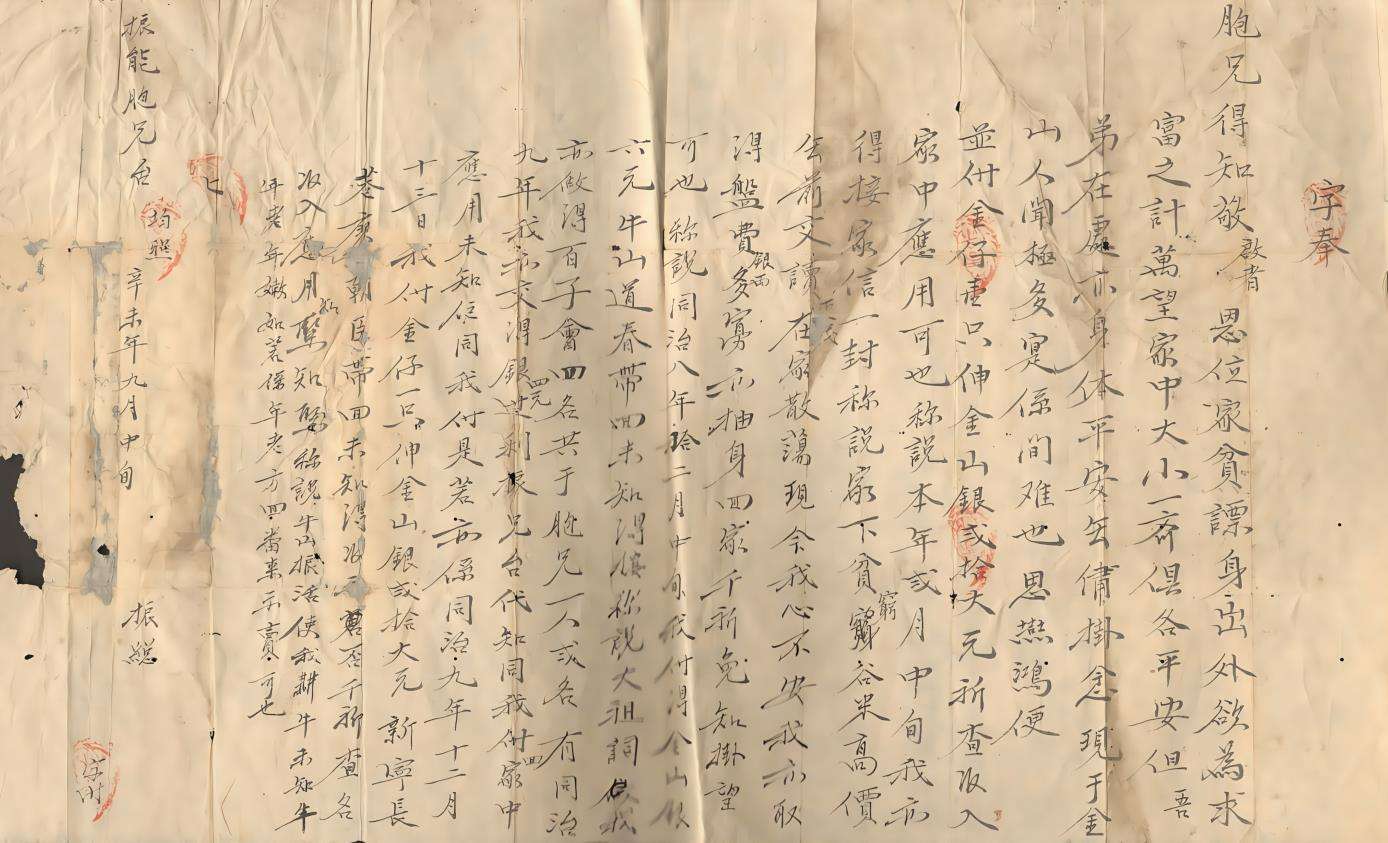 字奉
胞兄得知敬啟者恩位家貧漂身出外欲為求
富之計萬望家中大小一齊俱各平安但吾
弟在處亦身体平安無備掛念現于金
山人聞極多寔係間难也思燕鴻便
並付金仔壹只伸金山銀弍拾大元祈查收入
家中應用可也称說本年弍月中旬我亦
得接家信一封称說家下貧窮谷米高價
去前交讀在家散蕩現今我心不安我亦取
得盤費銀両多寡亦抽身回家千祈免知掛望
可也称說同治八年拾二月中旬我付得金山銀
六元牛山道春帶回未知得收称說大祖詞我
亦做得百子會四名共于胞兄一人或名有同治
九年我亦交得銀四元振兄台代知同我付回家中
應用未知信同我付是若亦係同治九年十二月
十三日我付金仔一只伸金山銀弍拾大元新寧長
庚朝臣帶回未知得收否千祈查名
收入應用知称說牛山振活使我耕牛未知牛
年老年嫩如若係年老方回當来示賣可也
振能胞兄台均照
辛未年九月中旬 振
字付